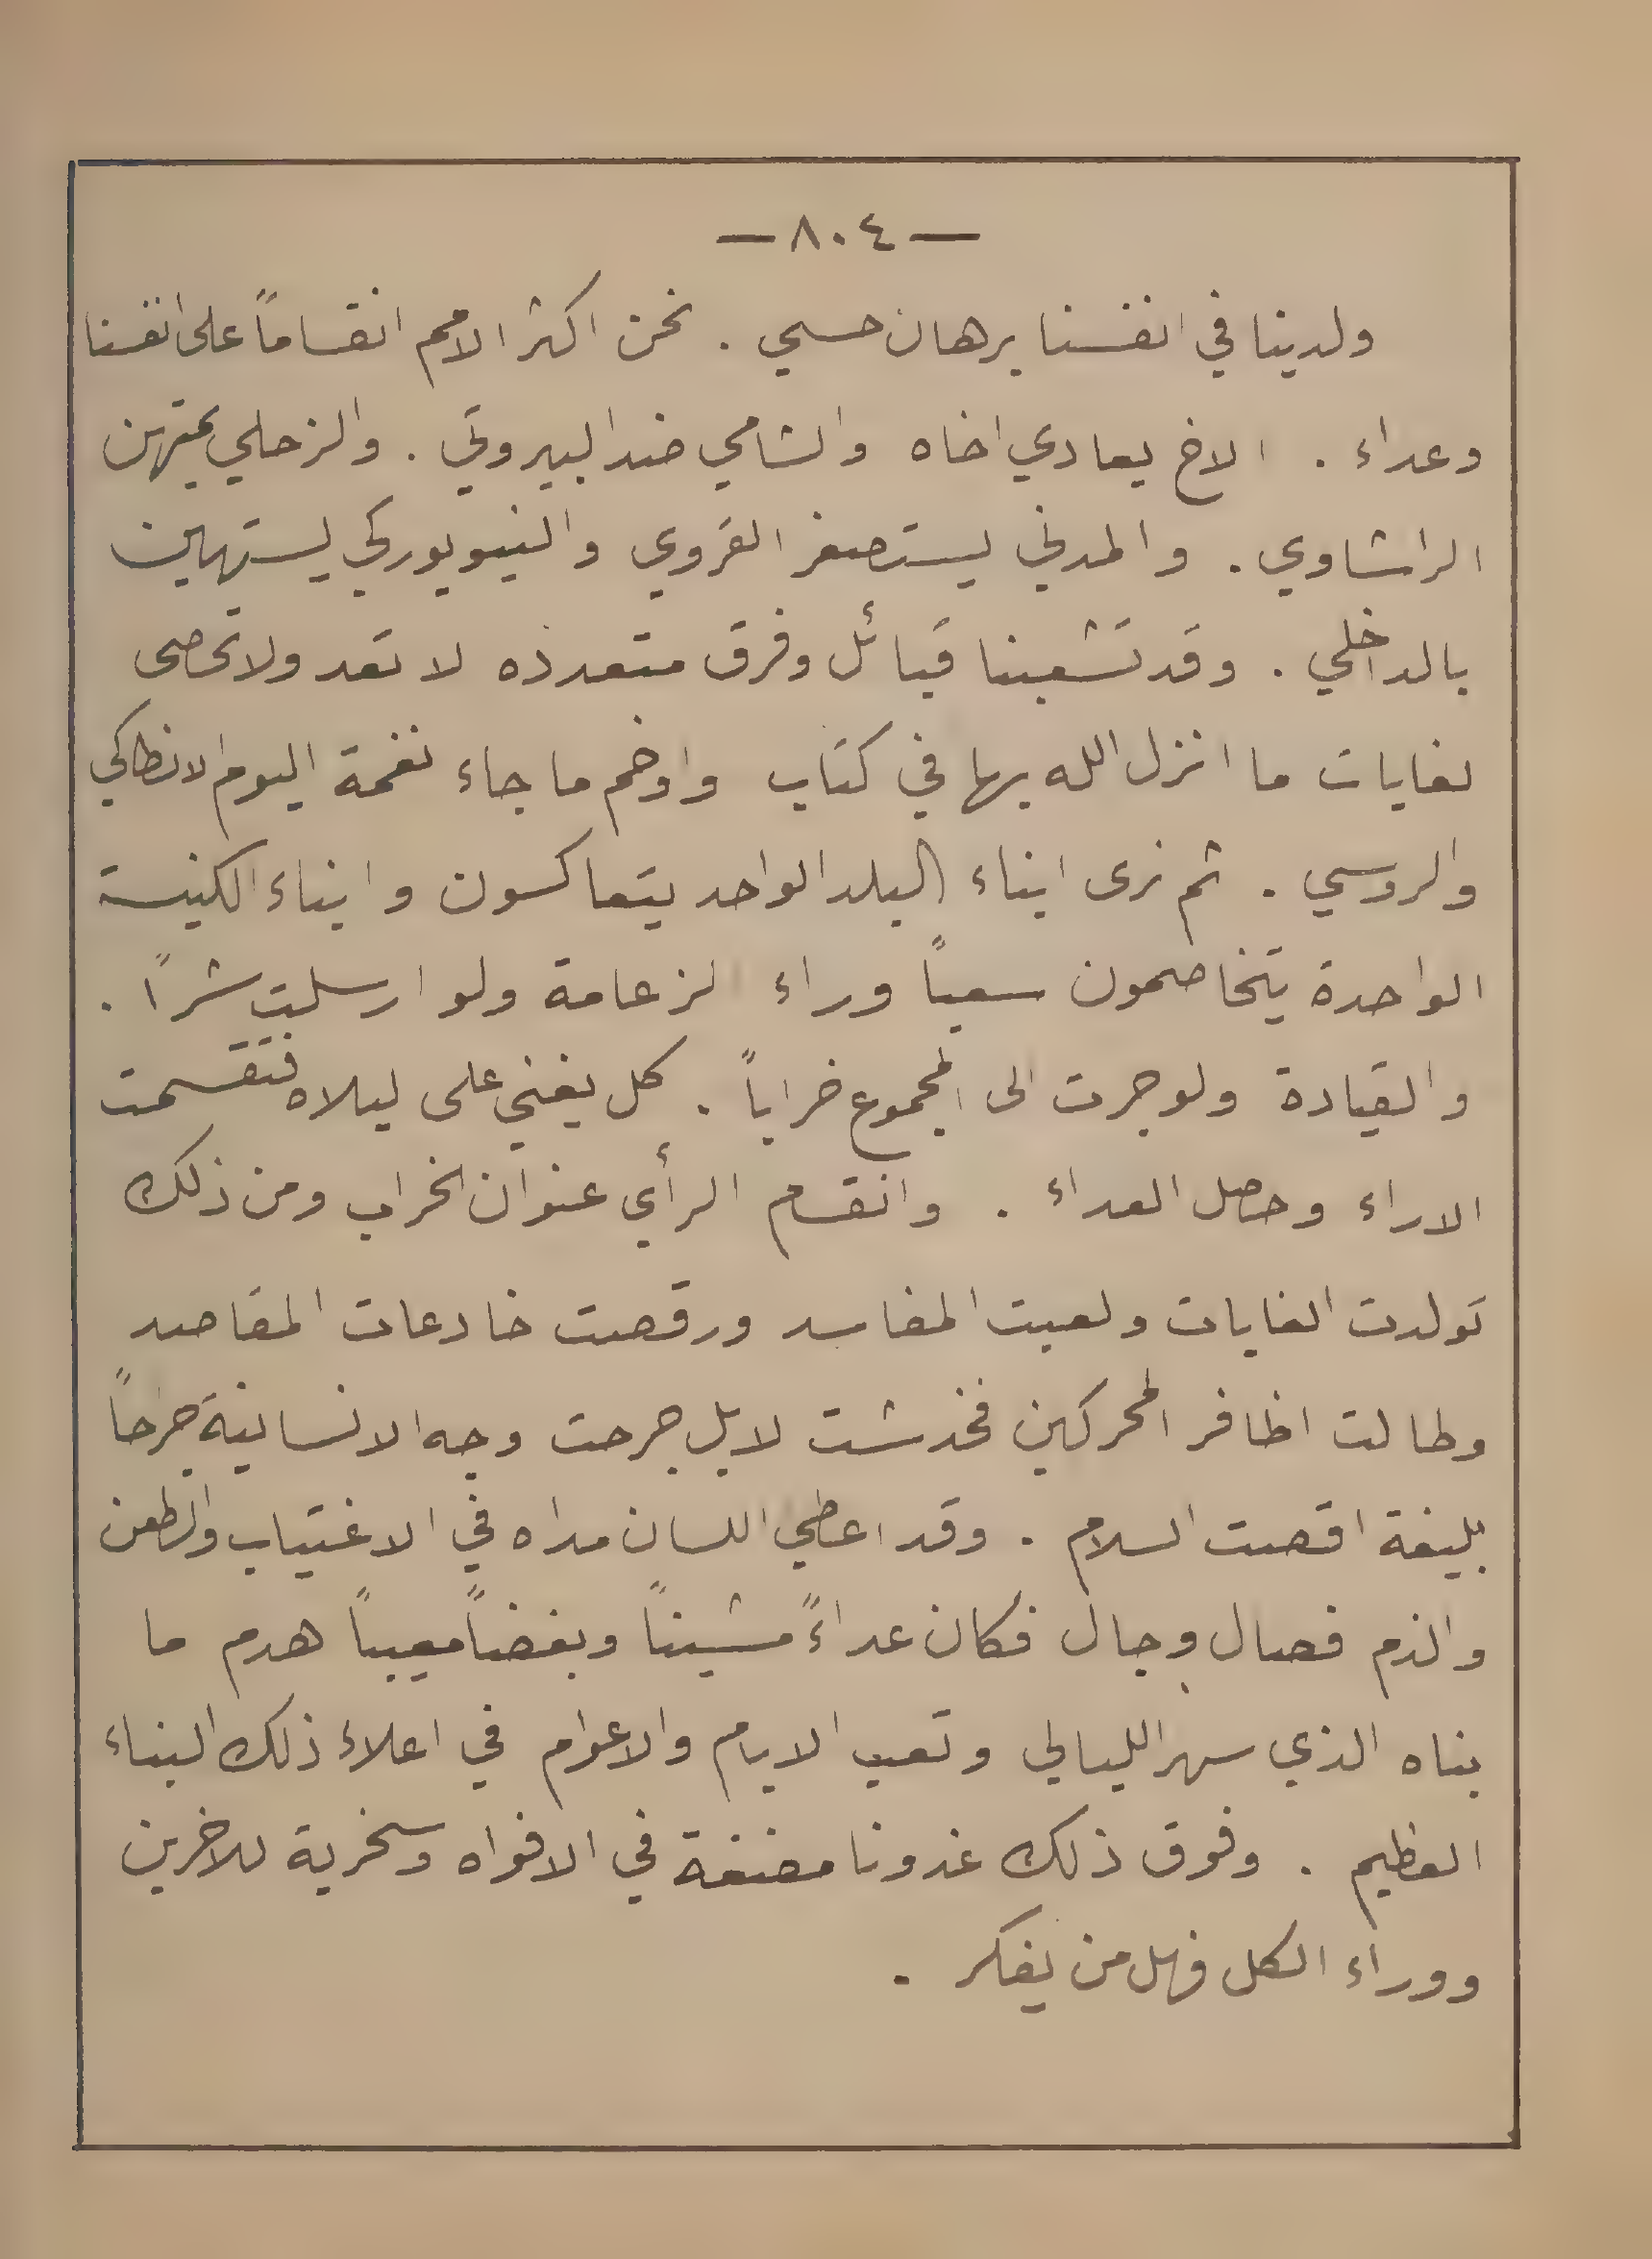 — ٨٠٤ —
ولدينا في انفسنا برهان حسي . نحن اكثر الامم انقساماً على انفسنا
وعداء . الاخ يعادي اخاه والشامي ضد البيروتي . والزحلي يمتهن
الراشاوي . والمدني يستصغر القروي والنيويوركي يستهين
بالداخلي . وقد تشعبنا قبائل وفرق متعدده لا تعد ولا تحصى
لغايات ما انزل الله بها في كتاب واوخم ما جاء نغمة اليوم الانطاكي
والروسي . ثم نرى ابناء البلد الواحد يتعاكسون وابناء الكنيسة
الواحدة يتخاصمون سعياً وراء الزعامة ولو ارسلت شراً .
والقيادة ولو جرت الى المجموع خراباً . كل يغني على ليلاه فتقسمت
الاراء وحصل العداء . وانقسام الرأي عنوان الخراب ومن ذلك
تولدت الغايات ولعبت المفاسد ورقصت خادعات المقاصد
وطالت اظافر المحركين فخدشت لا بل جرحت وجه الانسانية جرحاً
بليغة اقصت السلام . وقد اعطي اللسان مداه في الاغتياب والطعن
والذم فصال وجال فكان عداءً مشيناً وبغضاً معيباً هدم ما
بناه الذي سهر الليالي وتعب الايام والاعوام في اعلاء ذلك البناء
العظيم . وفوق ذلك غدونا مضغة في الافواه وسخرية للاخرين
ووراء الكل فهل من يفكر .